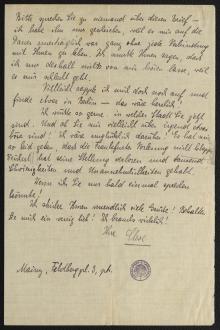 Bitte sprechen Sie zu niemand über diesen Brief –
ich habe ihn nur geschrieben, weil es mir auf die
Dauer unerträglich war ganz ohne jede Verbindung
mit Ihnen zu leben. Ich musste Ihnen sagen, dass
ich nur deshalb nichts von mir hören lasse, weil
es mir schlecht geht.
Vielleicht rappele ich mich doch noch auf und
finde etwas in Berlin – das wäre herrlich!
Ich wüsste so gerne, in welcher Stadt Sie jetzt
sind. Und ob Sie mir vielleicht über irgend etwas
böse sind! Ich wäre unglücklich darüber! Es hat mir
so leid getan, dass die Frankfurter Vorlesung nicht klappte.
hat seine Stellung verloren und dauernd
Schwierigkeiten und Unannehmlichkeiten gehabt.
Wenn ich Sie nur bald einmal sprechen
könnte!
Ich schicke Ihnen unendlich viele Grüsse! Behalten
Sie mich ein wenig lieb! Ich brauche es wirklich!
Ihre
Mainz, Feldbergpl. 3, ptr.